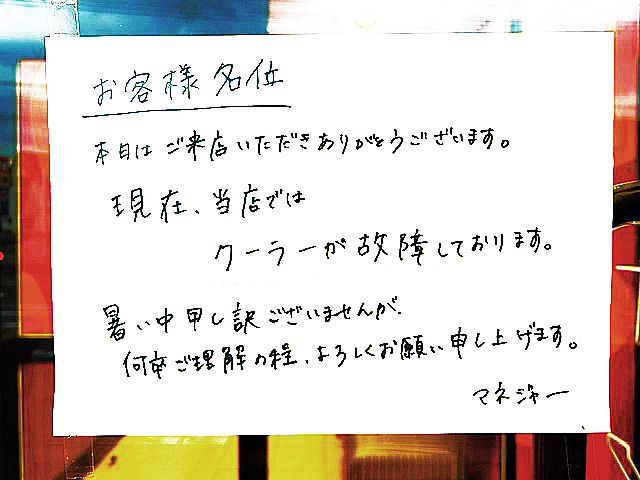 お客様名位
本日はご来店いただきありがとうございます。
現在、当店では
クーラーが故障しております。
暑い中申し訳ございませんが、
何卒ご理解の程、よろしくお願い申し上げます。
マネジャー